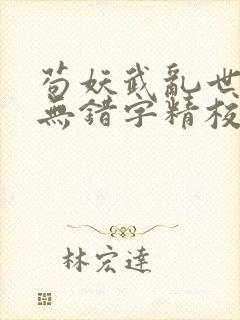 苟妖武亂世
無錯字精校
林宏達